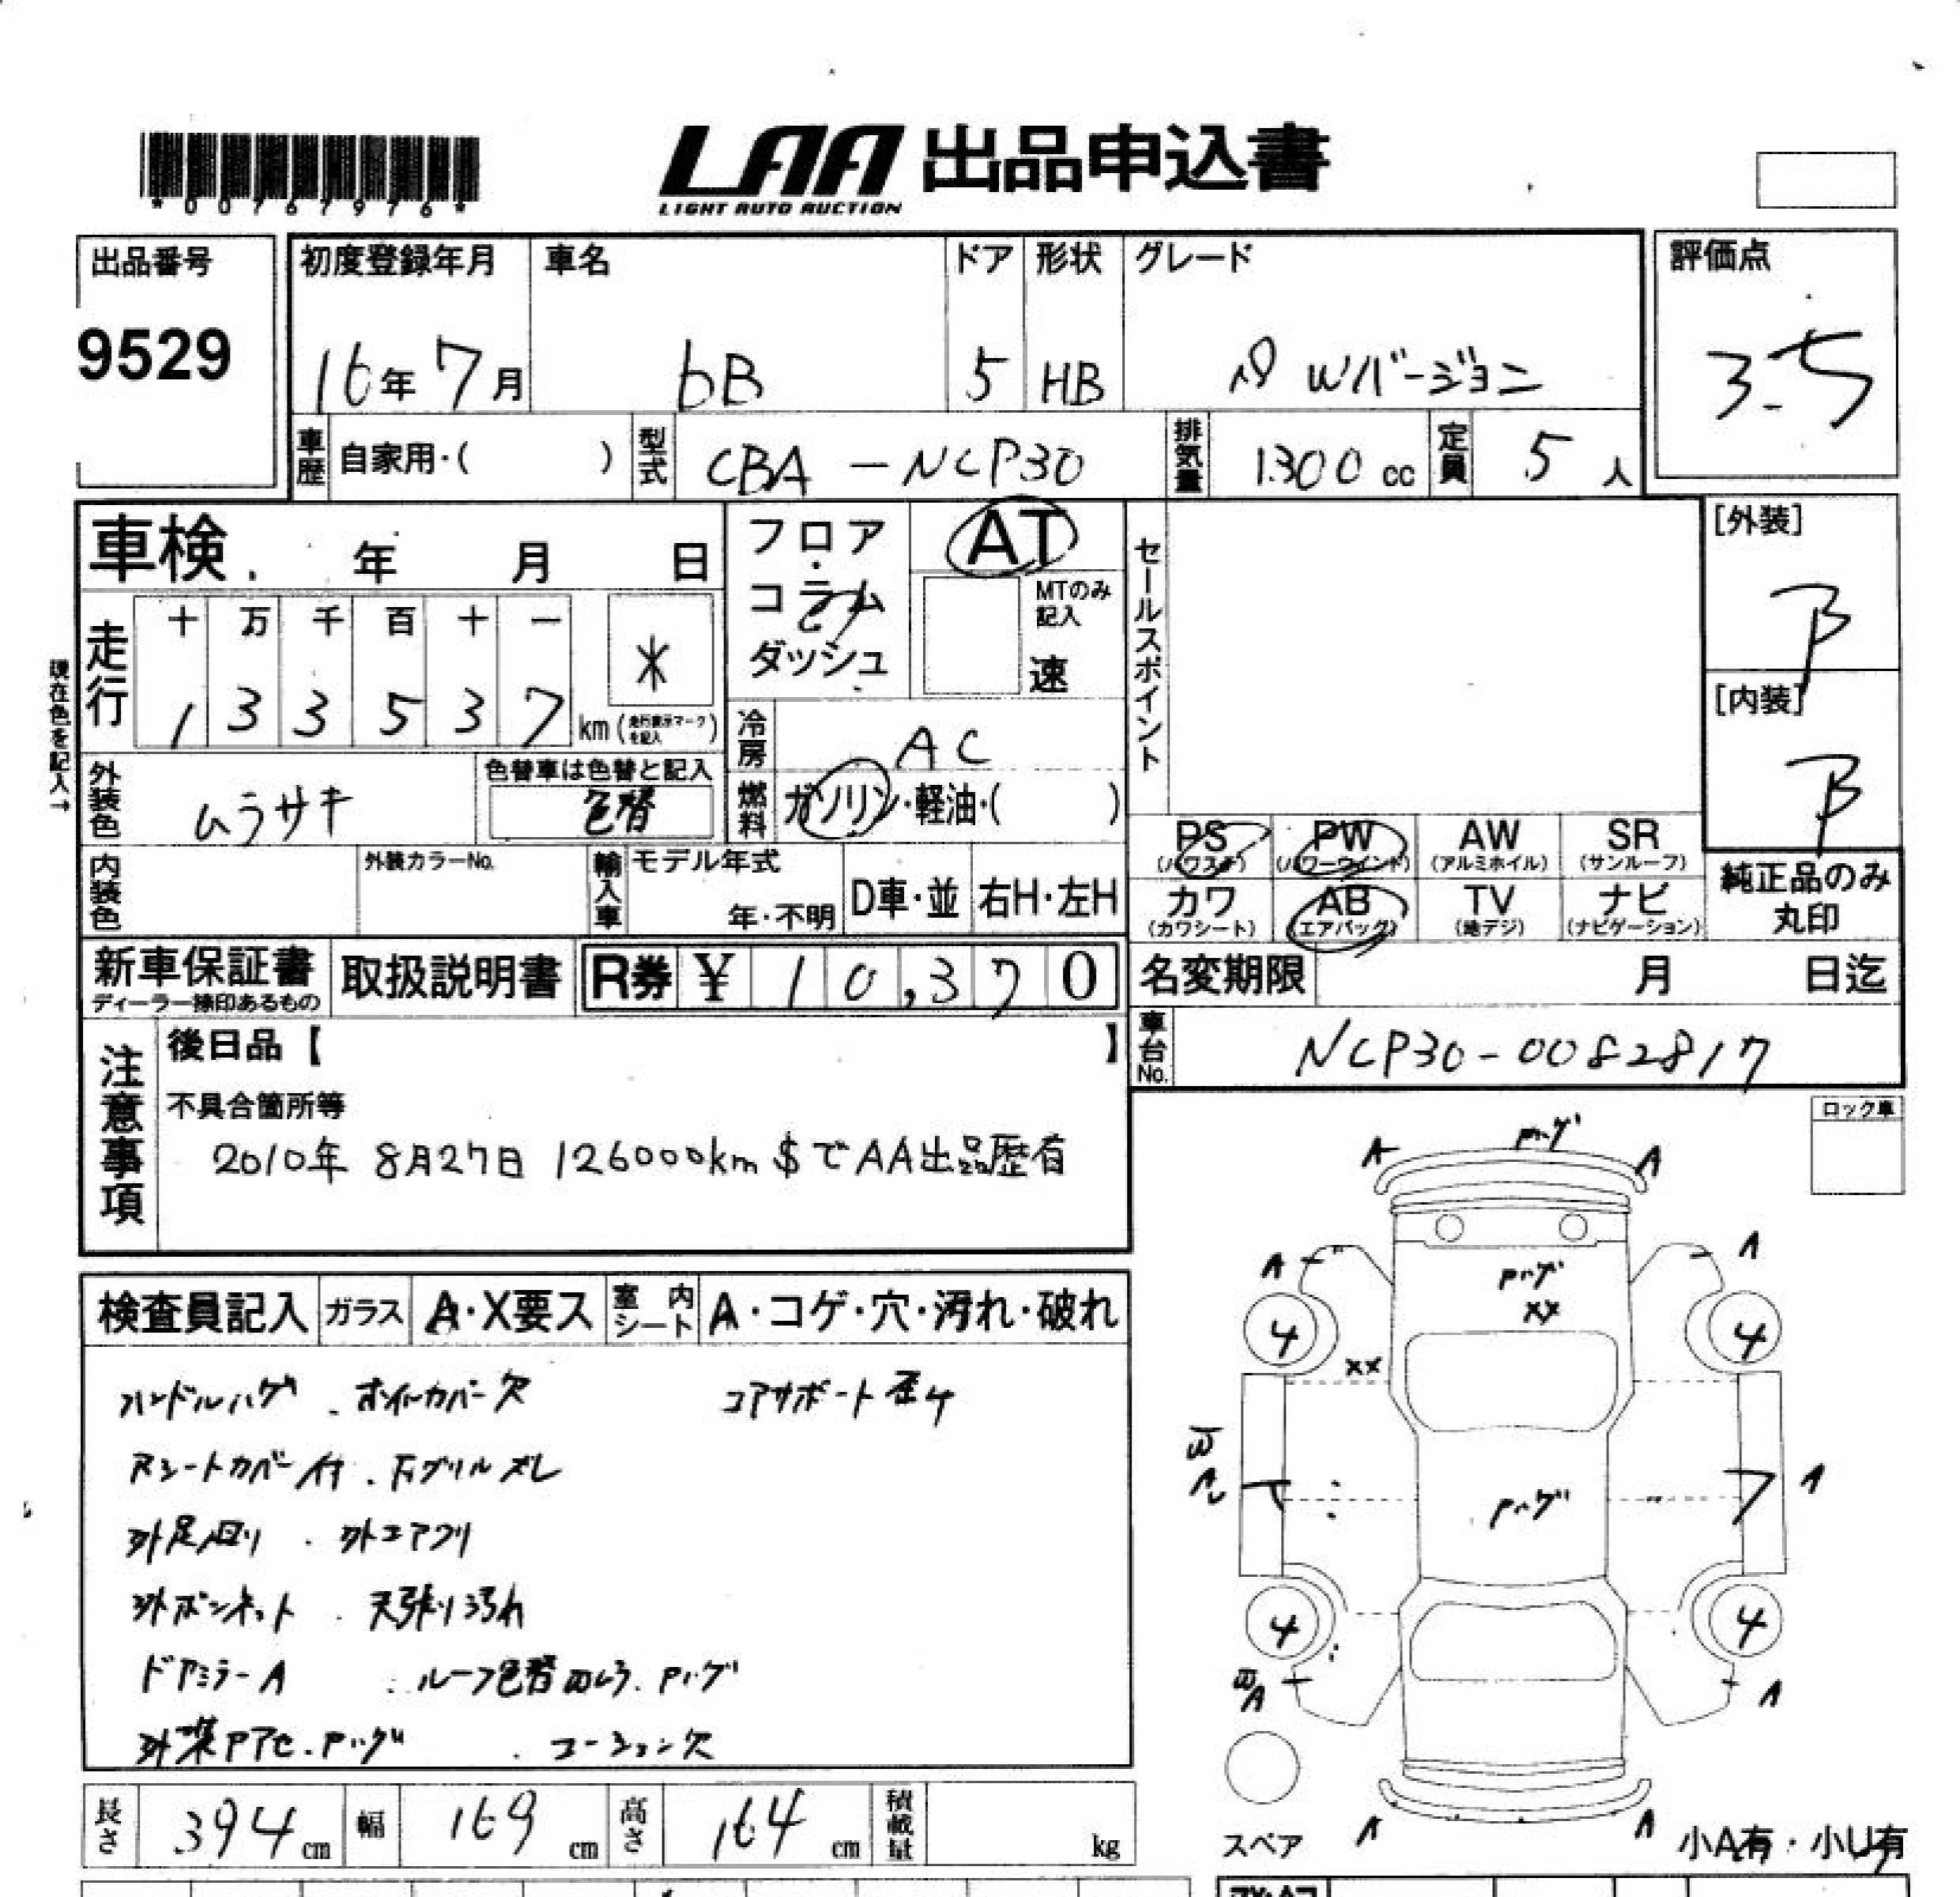 *00767976*
LAA 出品申込書
LIGHT AUTO AUCTION
出品番号
9529
初度登録年月 車名 ドア 形状 グレード
16年7月 bB 5 HB Wバージョン
評価点
3.5
車歴 自家用・( ) 型式 CBA-NCP30 排気量 1300cc 定員 5人
車検 年 月 日
フロア コラム ダッシュ
AT
MTのみ記入
速
セールスポイント
[外装]
B
[内装]
B
現在色を記入→
走行 十 万 千 百 十 一
1 3 3 5 3 7 km (走行表示マークを記入)
*
冷房 AC
外装色 ムラサキ 色替車は色替と記入
色替
燃料 ガソリン・軽油・( )
PS (パワステ) PW (パワーウインド) AW (アルミホイル) SR (サンルーフ)
カワ (カワシート) AB (エアバッグ) TV (地デジ) ナビ (ナビゲーション)
純正品のみ丸印
内装色 外装カラーNo. 輸入車 モデル年式 年・不明 D車・並 右H・左H
新車保証書 ディーラー捺印あるもの 取扱説明書 R券 ¥10,370
名変期限 月 日迄
車台No. NCP30-0082817
注意事項
後日品【 】
不具合箇所等
2010年 8月27日 126000km $でAA出品歴有
ロック車
検査員記入 ガラス A・X要ス 室内シート A・コゲ・穴・汚れ・破れ
ハンドルハゲ . ホイールカバー欠 コアサポート歪ケ
シートカバー付 . Fグリルズレ
外足回り . 外エアクリ
外ボンネット . 天張り汚れ
ドアミラーA . ルーフ色替 Pハゲ
Pハゲ . コーション欠
A Pハゲ A
A Pハゲ XX A
4 4
XX
A
Pハゲ
4 4
A A
A A
長さ 394cm 幅 169cm 高さ 164cm 積載量 kg
スペア 小A有・小U有